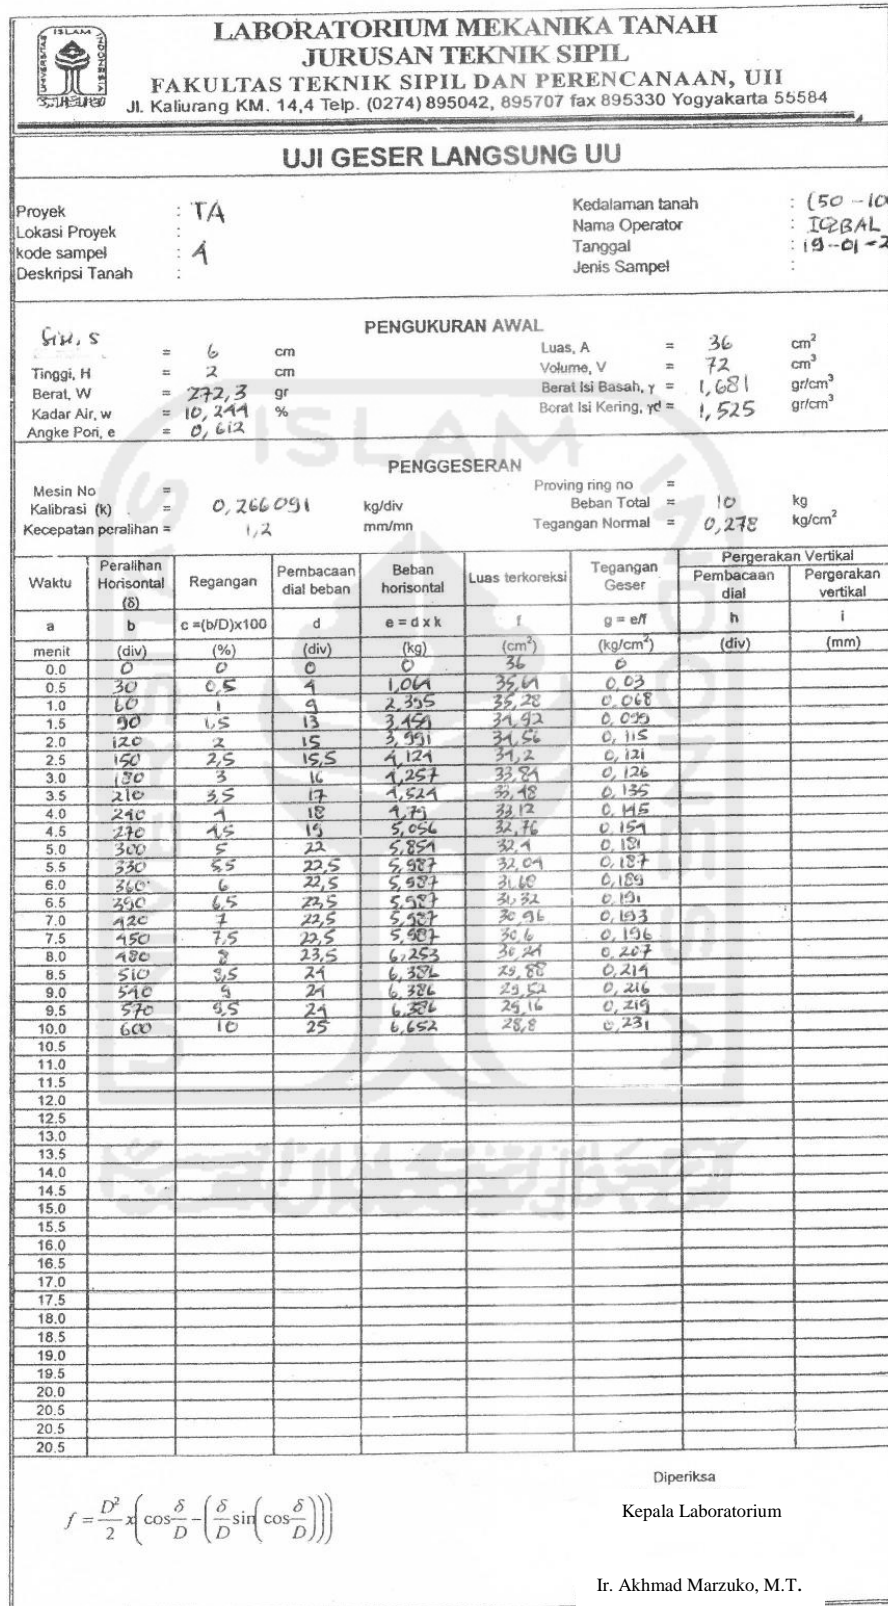 LABORATORIUM MEKANIKA TANAH
JURUSAN TEKNIK SIPIL
FAKULTAS TEKNIK SIPIL DAN PERENCANAAN, UII
Jl. Kaliurang KM. 14,4 Telp. (0274) 895042, 895707 fax 895330 Yogyakarta 55584
UJI GESER LANGSUNG UU
Proyek : TA Kedalaman tanah : (50 - 10
Lokasi Proyek : Nama Operator : IQBAL
kode sampel : A Tanggal : 19-01-2
Deskripsi Tanah : Jenis Sampel :
PENGUKURAN AWAL
Sisi, S = 6 cm Luas, A = 36 cm²
Tinggi, H = 2 cm Volume, V = 72 cm³
Berat, W = 272,3 gr Berat Isi Basah, γ = 1,681 gr/cm³
Kadar Air, w = 10,244 % Berat Isi Kering, γd = 1,525 gr/cm³
Angke Pori, e = 0,612
PENGGESERAN
Mesin No = Proving ring no =
Kalibrasi (k) = 0,266091 kg/div Beban Total = 10 kg
Kecepatan peralihan = 1,2 mm/mn Tegangan Normal = 0,278 kg/cm²
Waktu Peralihan Horisontal (δ) Regangan Pembacaan dial beban Beban horisontal Luas terkoreksi Tegangan Geser Pergerakan Vertikal Pembacaan dial Pergerakan vertikal
a b c =(b/D)x100 d e = d x k f g = e/f h i
menit (div) (%) (div) (kg) (cm²) (kg/cm²) (div) (mm)
0.0 0 0 0 0 36 0
0.5 30 0,5 4 1,064 35,64 0,03
1.0 60 1 9 2,395 35,28 0,068
1.5 90 1,5 13 3,459 34,92 0,099
2.0 120 2 15 3,991 34,56 0,115
2.5 150 2,5 15,5 4,124 34,2 0,121
3.0 180 3 16 4,257 33,84 0,126
3.5 210 3,5 17 4,524 33,48 0,135
4.0 240 4 18 4,79 33,12 0,145
4.5 270 4,5 19 5,056 32,76 0,154
5.0 300 5 22 5,854 32,4 0,181
5.5 330 5,5 22,5 5,987 32,04 0,187
6.0 360 6 22,5 5,987 31,68 0,189
6.5 390 6,5 22,5 5,987 31,32 0,191
7.0 420 7 22,5 5,987 30,96 0,193
7.5 450 7,5 22,5 5,987 30,6 0,196
8.0 480 8 23,5 6,253 30,24 0,207
8.5 510 8,5 24 6,386 29,88 0,214
9.0 540 9 24 6,386 29,52 0,216
9.5 570 9,5 24 6,386 29,16 0,219
10.0 600 10 25 6,652 28,8 0,231
10.5
11.0
11.5
12.0
12.5
13.0
13.5
14.0
14.5
15.0
15.5
16.0
16.5
17.0
17.5
18.0
18.5
19.0
19.5
20.0
20.5
20.5
20.5
f = D²/2 x(cos δ/D - (δ/D sin(cos δ/D)))
Diperiksa
Kepala Laboratorium
Ir. Akhmad Marzuko, M.T.